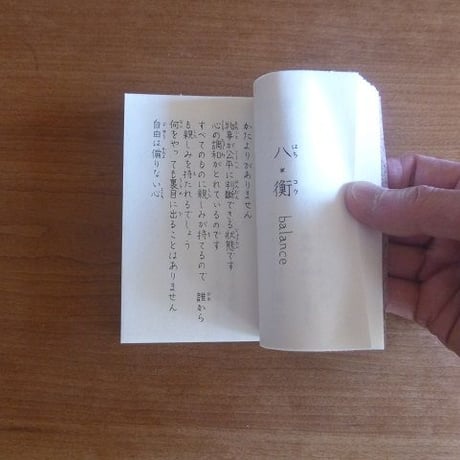 八*衡 balance
かたよりがありません
物事が公平に判断できる状態です
心の調和がとれているのです
すべてのものに親しみが持てるので 誰から
も親しみを持たれるでしょう
何をやっても裏目に出ることはありません
自由は偏りない心